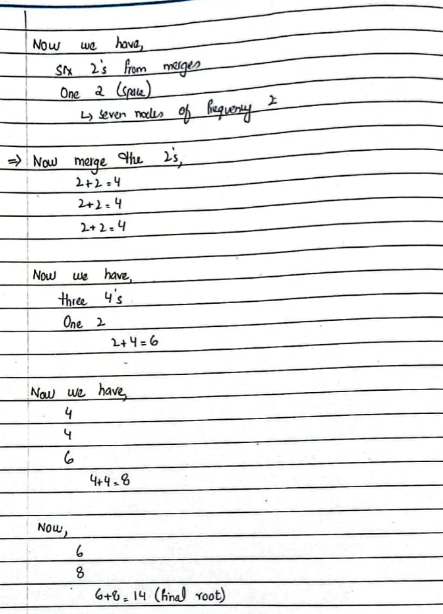 Now we have,
six 2's from merges
One 2 (space)
↳ seven nodes of frequency 2
⇒ Now merge the 2's,
2+2=4
2+2=4
2+2=4
Now we have,
three 4's
One 2
2+4=6
Now we have,
4
4
6
4+4=8
Now,
6
8
6+8=14 (final root)